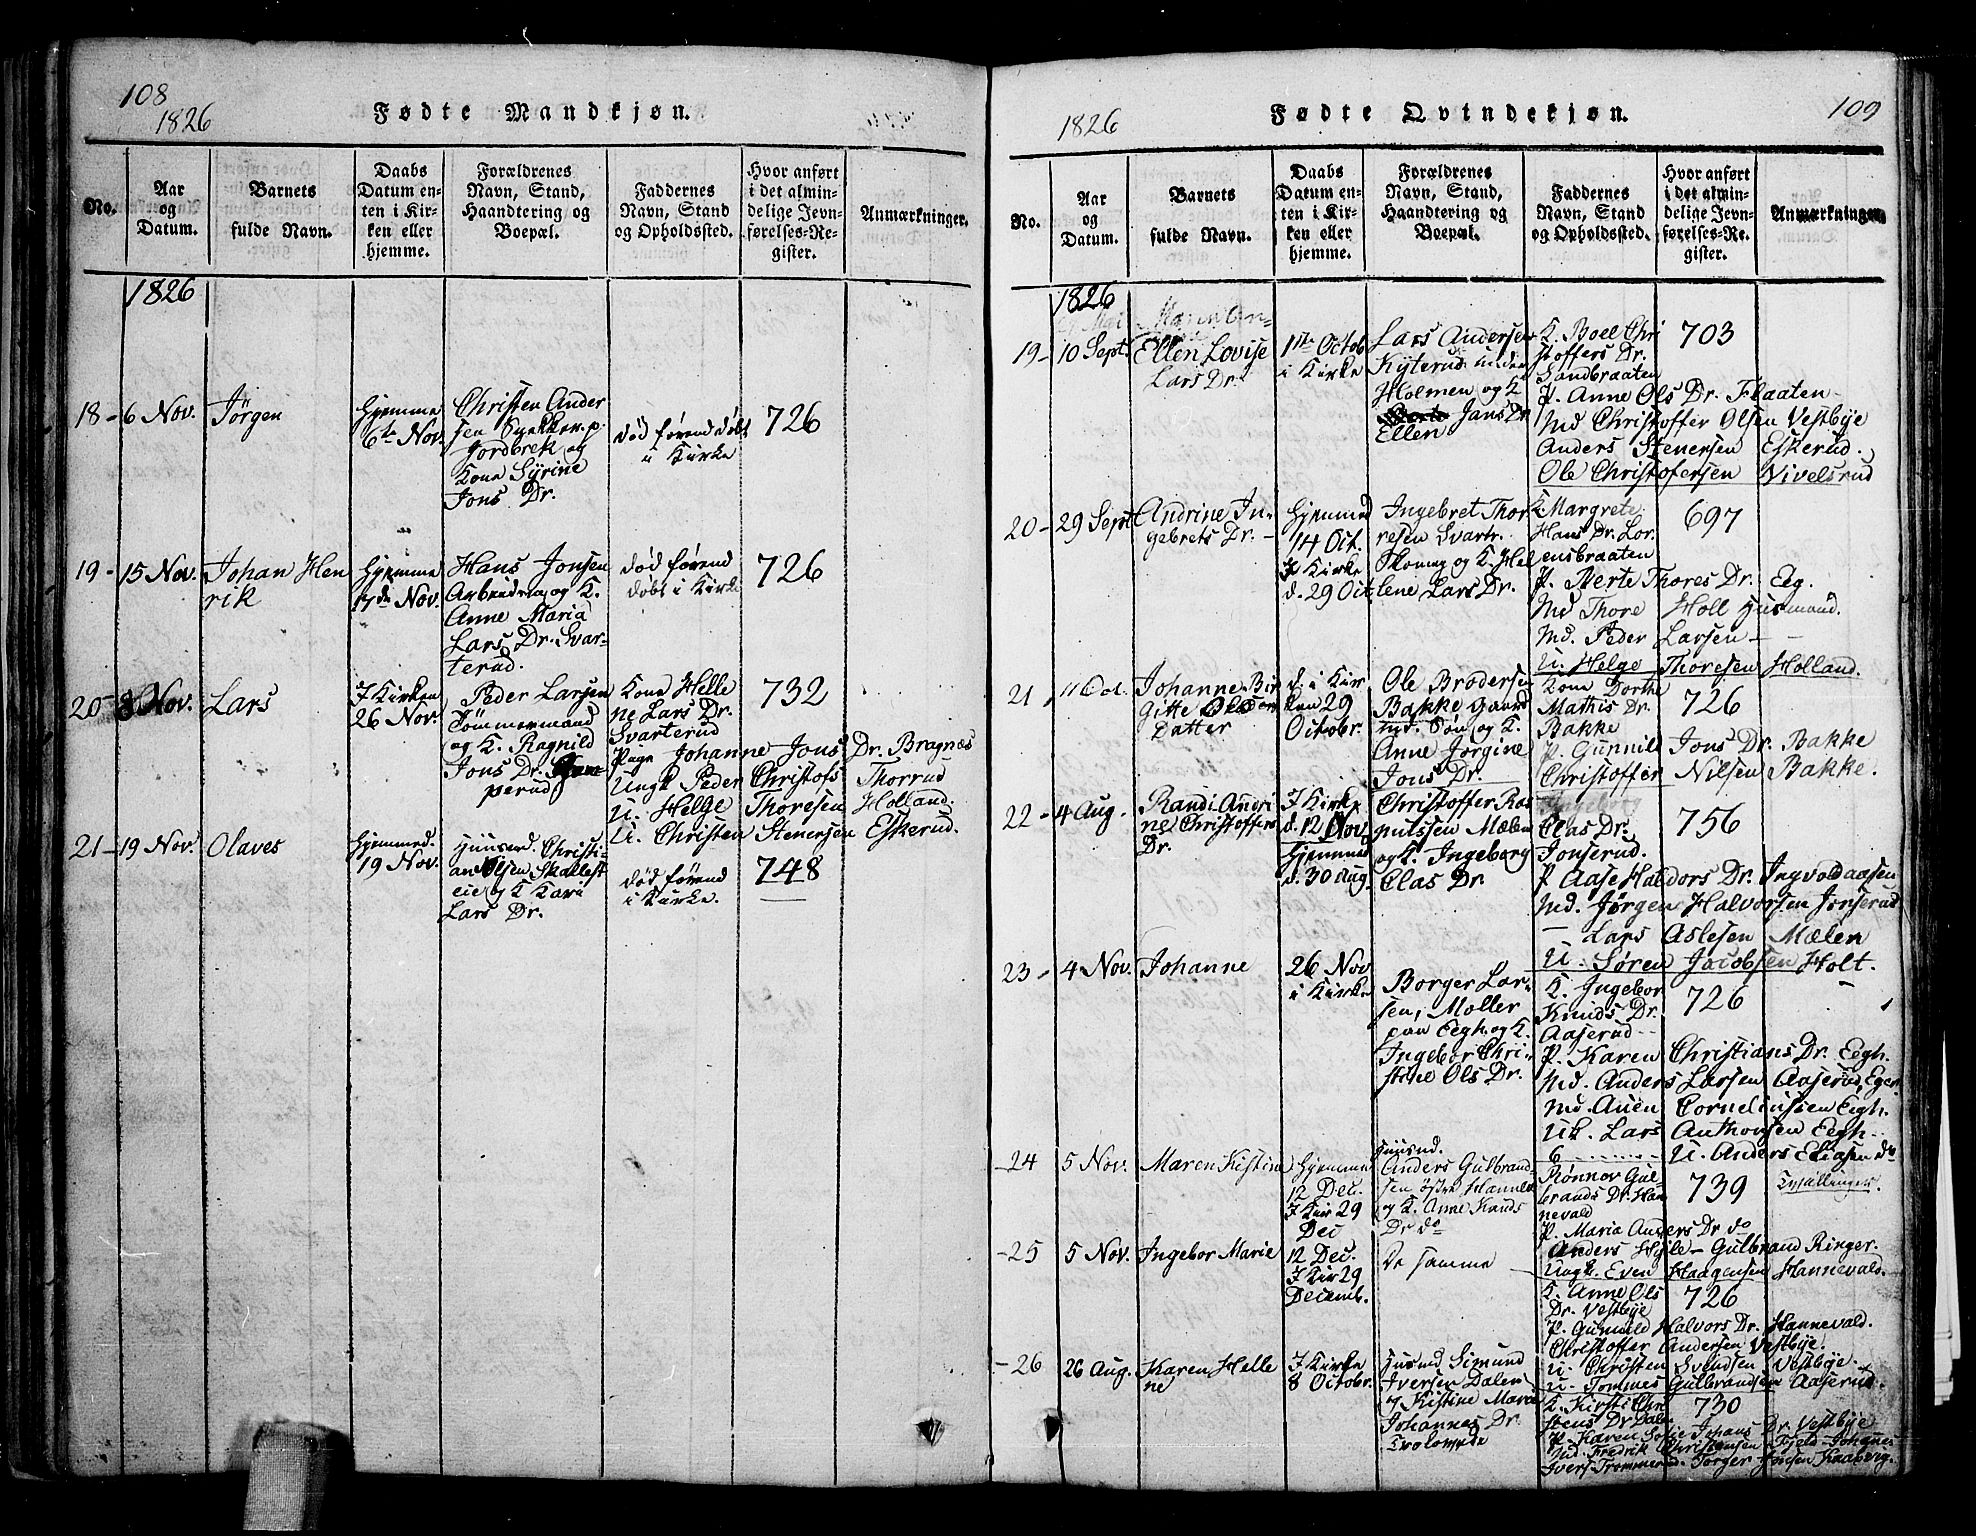 108
1826
Fødte Mandkjøn.
No.
Aar
og
Datum.
Barnets
fulde Navn.
Daabs
Datum en-
ten i Kir-
ken eller
hjemme.
Forældrenes
Navn, Stand,
Haandtering og
Boepæl.
Faddernes
Navn, Stand
og Opholdssted.
Hvor anført
i det almin-
delige Jevn-
førelses-Re-
gister.
Anmærkninger.
1826
18 - 6 Nov.
Jørgen
Hjemme
6te Nov.
Christen Ander
sen Snekker p.
Jordbrek og
Kone Syrine
Jons Dr.
død førend døbt
i Kirke
726
19 - 15 Nov.
Johan Hen
rik
Hjemme
17de Nov.
Hans Jonsen
Arbeidm og K.
Anne Maria
Lars Dr. Svar-
terud.
død førend
døbt i Kirke
726
20 - 8 Nov.
Lars
I Kirken
26 Nov.
Peder Larsen
Tømmermand
og K. Ragnild
Jons Dr.
perud
Kone Helle
ne Lars Dr.
Svarterud
Pige Johanne Jons Dr. Bragnæs
Ungk Peder Christofs Thorrud
U. Helge Thoresen Holland.
U. Christen Stenersen Eskerud.
732
21 - 19 Nov.
Olaves
Hjemmed.
19 Nov.
Huusmd. Christi-
an Olsen Skallest
eie og K Kari
Lars Dr.
død førend
i Kirke.
748
109
1826
Fødte Qvindekjøn.
No.
Aar
og
Datum.
Barnets
fulde Navn.
Daabs
Datum en-
ten i Kir-
ken eller
hjemme.
Forældrenes
Navn, Stand,
Haandtering og
Boepæl.
Faddernes
Navn, Stand
og Opholdssted.
Hvor anført
i det almin-
delige Jevn-
førelses-Re-
gister.
Anmærkninger.
1826
19 - 10 Sept.
Ellen Lovise
Lars Dr.
1te Octob
i Kirke
Lars Andersen
Kyterud under
Holmen og K
Jans Dr
Ellen
K. Boel Chri
stoffers Dr.
Sandbraaten
P. Anne Ols Dr. Flaaten
Md Christoffer Olsen Vestbye
Anders Stenersen Eskerud.
Ole Christofersen Vivelsrud
703
20 - 29 Sept
Andrine In-
gebrets Dr.
Hjemmed
14 Oct.
I Kirke
d. 29 Oct.
Ingebret Thor
resen Svartr.
Skoning og K. Hel
lene Lars Dr.
K Margrete
Hans Dr. Lor
ensbraaten
P. Berte Thores Dr. Eeg.
Md Thore Holl Husmand.
Md. Peder Larsen -
U. Helge Thoresen Holland.
697
21 11 Oct.
Johanne Bir
gitte
Datter
d. i Kir
ken 29
Octobr.
Ole Brodersen
Bakke Gaard
md. Søn og K.
Anne Jørgine
Jons Dr.
Kone Dorthe
Mathis Dr.
Bakke
P. Gunnild Jons Dr. Bakke
Christoffer Nilsen Bakke.
726
22 - 4 Aug.
Randi Andri
ne Christoffers
Dr.
I Kirke
d. 12 Nov
Hjemmed
d. 30 Aug.
Christoffer Ras
mussen Mælen
og K. Ingeborg
Clas Dr.
Ingeborg
Clas Dr.
Jonserud.
P Aase Haldors Dr. Ingvoldaasen
Md. Jørgen Halvorsen Jonserud
- Lars Aslesen Mælen
U. Søren Jacobsen Holt.
756
23 - 4 Nov.
Johanne
26 Nov
i Kirke
Borger Lar-
sen, Møller
paa Eegh og K.
Ingebor Chri-
stine Ols Dr.
K. Ingebor
Knuds Dr.
Aaserud
P. Karen Christians Dr. Eegh.
Md. Anders Larsen Aaserud, Eger
Md. Auen Corneliussen Eegh.
Uk. Lars Anthonsen Eegh
6 U. Anders Eliasen do
726
24 5 Nov.
Maren Kistine
Hjemme
12 Dec.
I Kir 29
Dec
Huusmd.
Anders Gulbrand-
sen østre Hannev
og K. Anne Knuds
Dr do
Rønnov Gul-
brands Dr. Han
nevald
P. Maria Anders Dr do
Anders Hyle - Gulbrand Ringer.
Ungk. Even Haagensen Hannevald.
739
Tvillinger.
25 5 Nov.
Ingebor Marie
12 Dec.
I Kir 29
Decemb.
De samme
K. Anne Ols
Dr. Vestbye
P. Gunnild Halvors Dr. Hannevald.
Christoffer Andersen Vestbye.
U. Christen Svendsen Vestbye
U. Tommes Gulbrandsen Aaserud.
726
26 26 Aug.
Karen Helle
ne
I Kirke
8 Octobr.
Huusmd Simund
Iversen Dalen
og Kistine Marie
Johannes Dr.
K. Kirsti Chri
stens Dr Dalen
P. Karen Sofie Johans Dr. Vestbye
Md. Fredrik Christensen Fjeld Johannes
Ivers. Trommerud Jørger Jonsen Kaaberg.
730